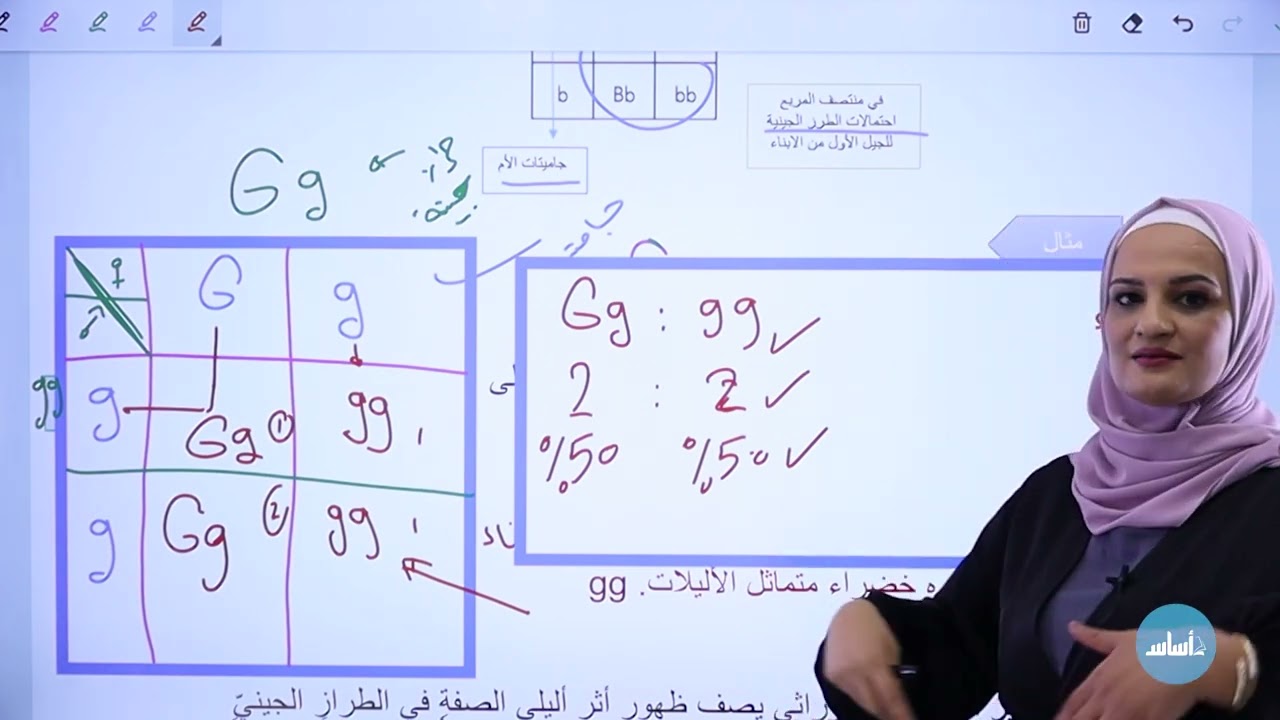 b Bb bb
في منتصف المربع
احتمالات الطرز الجينية
للجيل الأول من الابناء
جاميتات الأم
Gg
مثال
♀ G g
gg
g Gg ① gg ١
g Gg ② gg ١
Gg : gg
2 : 2
%50 %50
خضراء متماثل الأليلات. gg
يصف ظهور أثر أليلي الصفة في الطراز الجينيّ
أساس